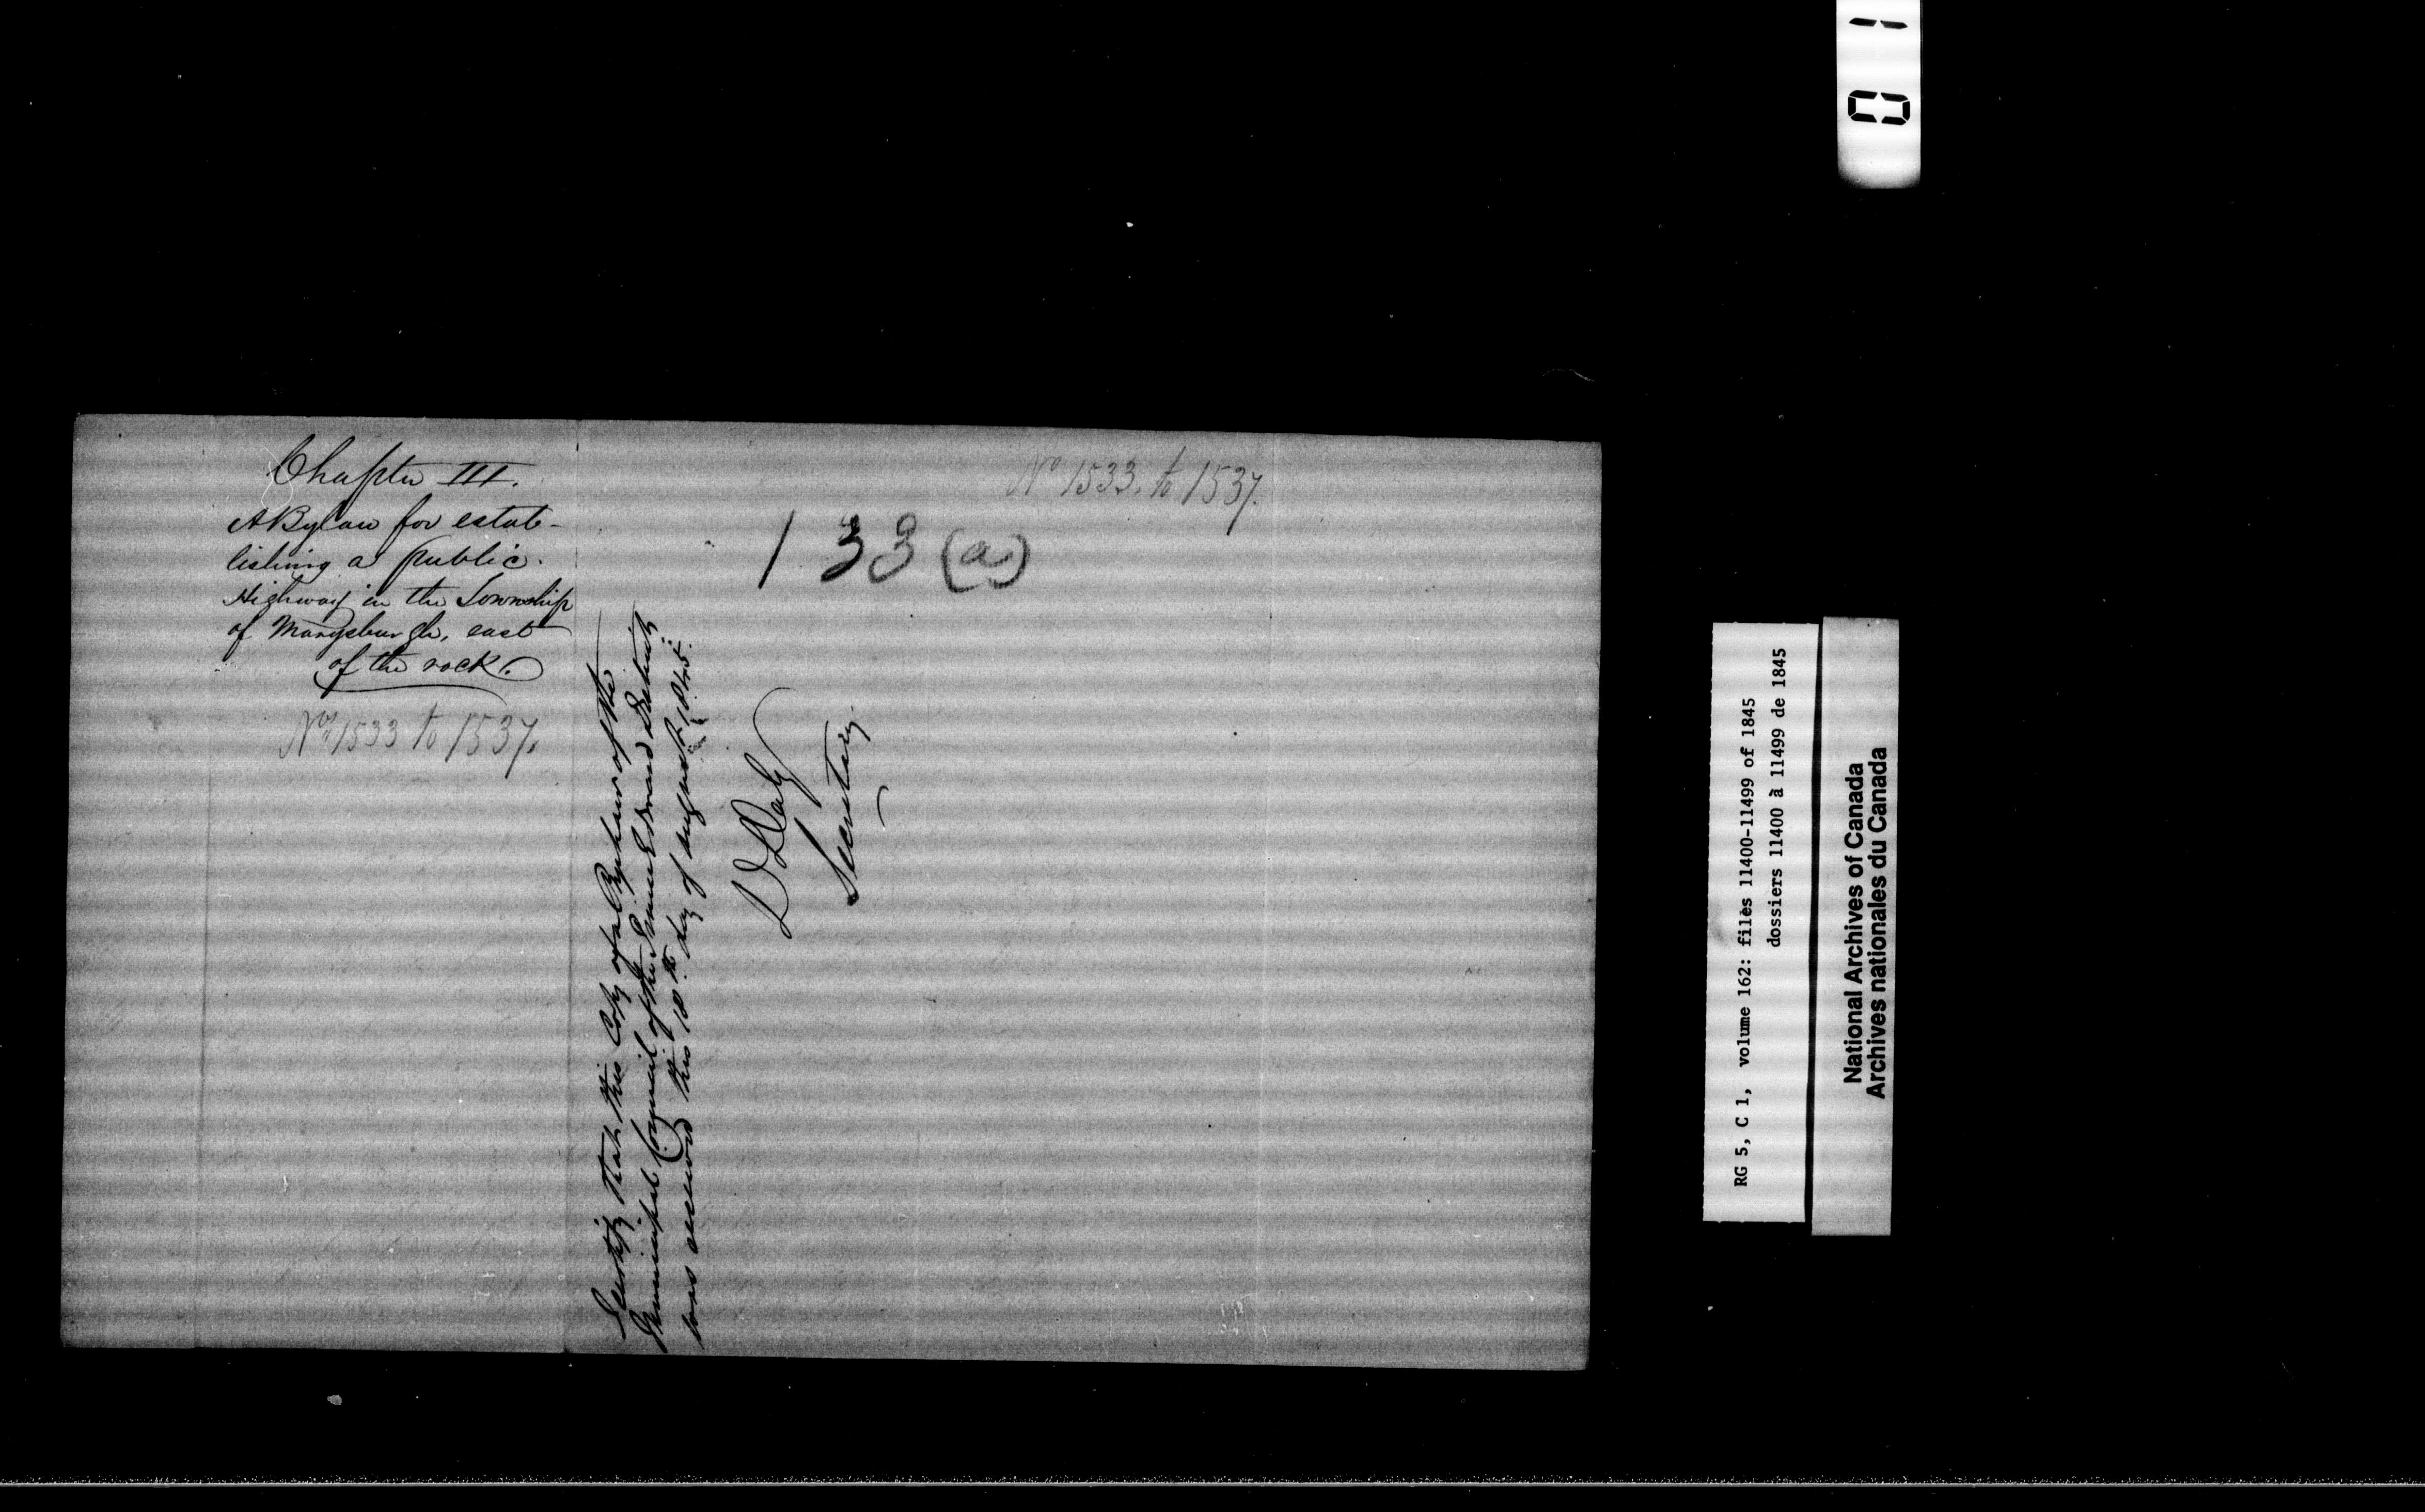 Chapter III.
A Bylaw for estab-
lishing a public
Highway in the Township
of Marysburgh, east
of the rock.
Nos 1533 to 1537.
No 1533. to 1537.
133 (a)
I certify that this Copy of a Bylaw of the
Municipal Council of the Prince Edward District
was received this 18th day of August 1845.
D Daly
Secretary.
RG 5, C 1, volume 162: files 11400-11499 of 1845
dossiers 11400 à 11499 de 1845
National Archives of Canada
Archives nationales du Canada
01